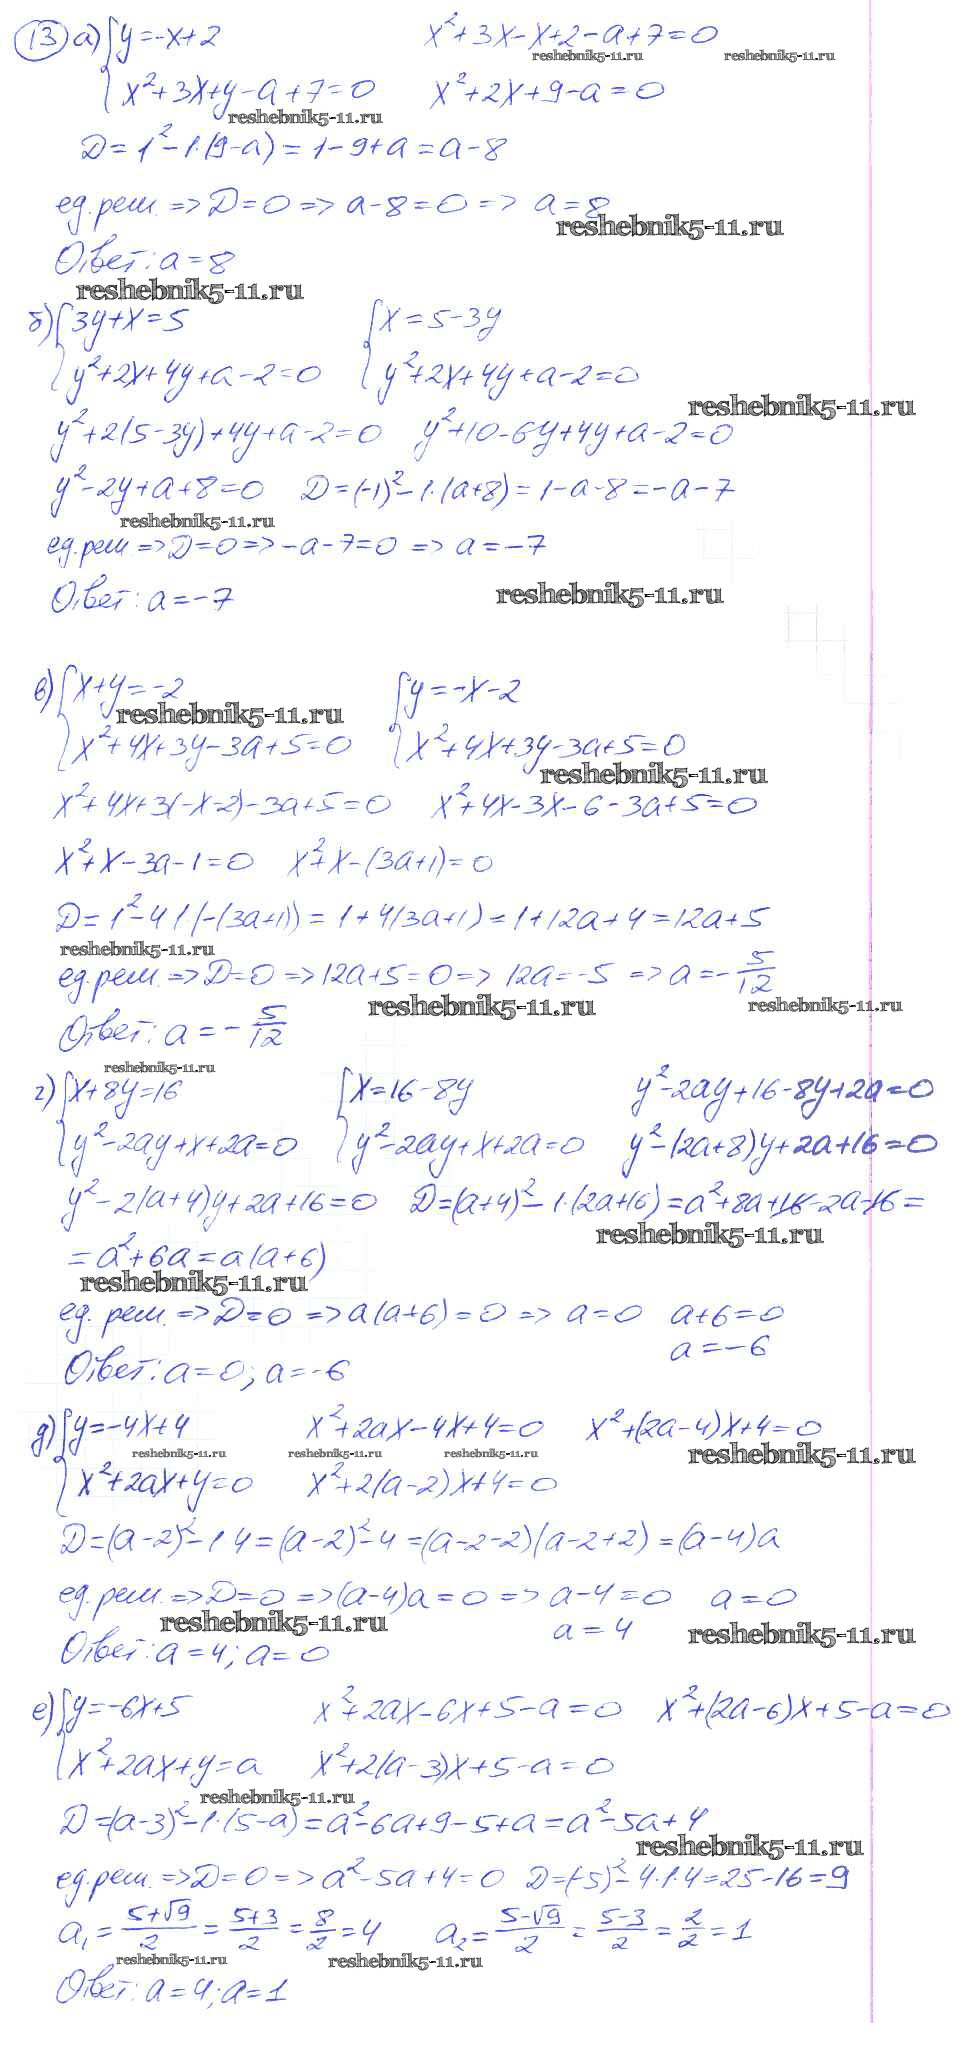 13 а) { y = -x + 2    x² + 3x - x + 2 - a + 7 = 0
reshebnik5-11.ru    reshebnik5-11.ru
{ x² + 3x + y - a + 7 = 0    x² + 2x + 9 - a = 0
reshebnik5-11.ru
D = 1² - 1·(9 - a) = 1 - 9 + a = a - 8
ед. реш. => D = 0 => a - 8 = 0 => a = 8
reshebnik5-11.ru
Ответ: a = 8
reshebnik5-11.ru
б) { 3y + x = 5    { x = 5 - 3y
{ y² + 2x + 4y + a - 2 = 0    { y² + 2x + 4y + a - 2 = 0
reshebnik5-11.ru
y² + 2(5 - 3y) + 4y + a - 2 = 0    y² + 10 - 6y + 4y + a - 2 = 0
y² - 2y + a + 8 = 0    D = (-1)² - 1·(a + 8) = 1 - a - 8 = -a - 7
reshebnik5-11.ru
ед. реш => D = 0 => -a - 7 = 0 => a = -7
Ответ: a = -7
reshebnik5-11.ru
в) { x + y = -2    { y = -x - 2
reshebnik5-11.ru
{ x² + 4x + 3y - 3a + 5 = 0    { x² + 4x + 3y - 3a + 5 = 0
reshebnik5-11.ru
x² + 4x + 3(-x - 2) - 3a + 5 = 0    x² + 4x - 3x - 6 - 3a + 5 = 0
x² + x - 3a - 1 = 0    x² + x - (3a + 1) = 0
D = 1² - 4·1·(-(3a + 1)) = 1 + 4(3a + 1) = 1 + 12a + 4 = 12a + 5
reshebnik5-11.ru
ед. реш. => D = 0 => 12a + 5 = 0 => 12a = -5 => a = -5/12
reshebnik5-11.ru    reshebnik5-11.ru
Ответ: a = -5/12
reshebnik5-11.ru
г) { x + 8y = 16    { x = 16 - 8y    y² - 2ay + 16 - 8y + 2a = 0
{ y² - 2ay + x + 2a = 0    { y² - 2ay + x + 2a = 0    y² - (2a + 8)y + 2a + 16 = 0
y² - 2(a + 4)y + 2a + 16 = 0    D = (a + 4)² - 1·(2a + 16) = a² + 8a + 16 - 2a - 16 =
reshebnik5-11.ru
= a² + 6a = a(a + 6)
reshebnik5-11.ru
ед. реш. => D = 0 => a(a + 6) = 0 => a = 0    a + 6 = 0
a = -6
Ответ: a = 0; a = -6
д) { y = -4x + 4    x² + 2ax - 4x + 4 = 0    x² + (2a - 4)x + 4 = 0
reshebnik5-11.ru    reshebnik5-11.ru    reshebnik5-11.ru    reshebnik5-11.ru
{ x² + 2ax + y = 0    x² + 2(a - 2)x + 4 = 0
D = (a - 2)² - 1·4 = (a - 2)² - 4 = (a - 2 - 2)(a - 2 + 2) = (a - 4)a
ед. реш. => D = 0 => (a - 4)a = 0 => a - 4 = 0    a = 0
reshebnik5-11.ru    a = 4    reshebnik5-11.ru
Ответ: a = 4; a = 0
е) { y = -6x + 5    x² + 2ax - 6x + 5 - a = 0    x² + (2a - 6)x + 5 - a = 0
{ x² + 2ax + y = a    x² + 2(a - 3)x + 5 - a = 0
reshebnik5-11.ru
D = (a - 3)² - 1·(5 - a) = a² - 6a + 9 - 5 + a = a² - 5a + 4
reshebnik5-11.ru
ед. реш. => D = 0 => a² - 5a + 4 = 0    D = (-5)² - 4·1·4 = 25 - 16 = 9
a₁ = (5 + √9)/2 = (5 + 3)/2 = 8/2 = 4    a₂ = (5 - √9)/2 = (5 - 3)/2 = 2/2 = 1
reshebnik5-11.ru    reshebnik5-11.ru
Ответ: a = 4; a = 1